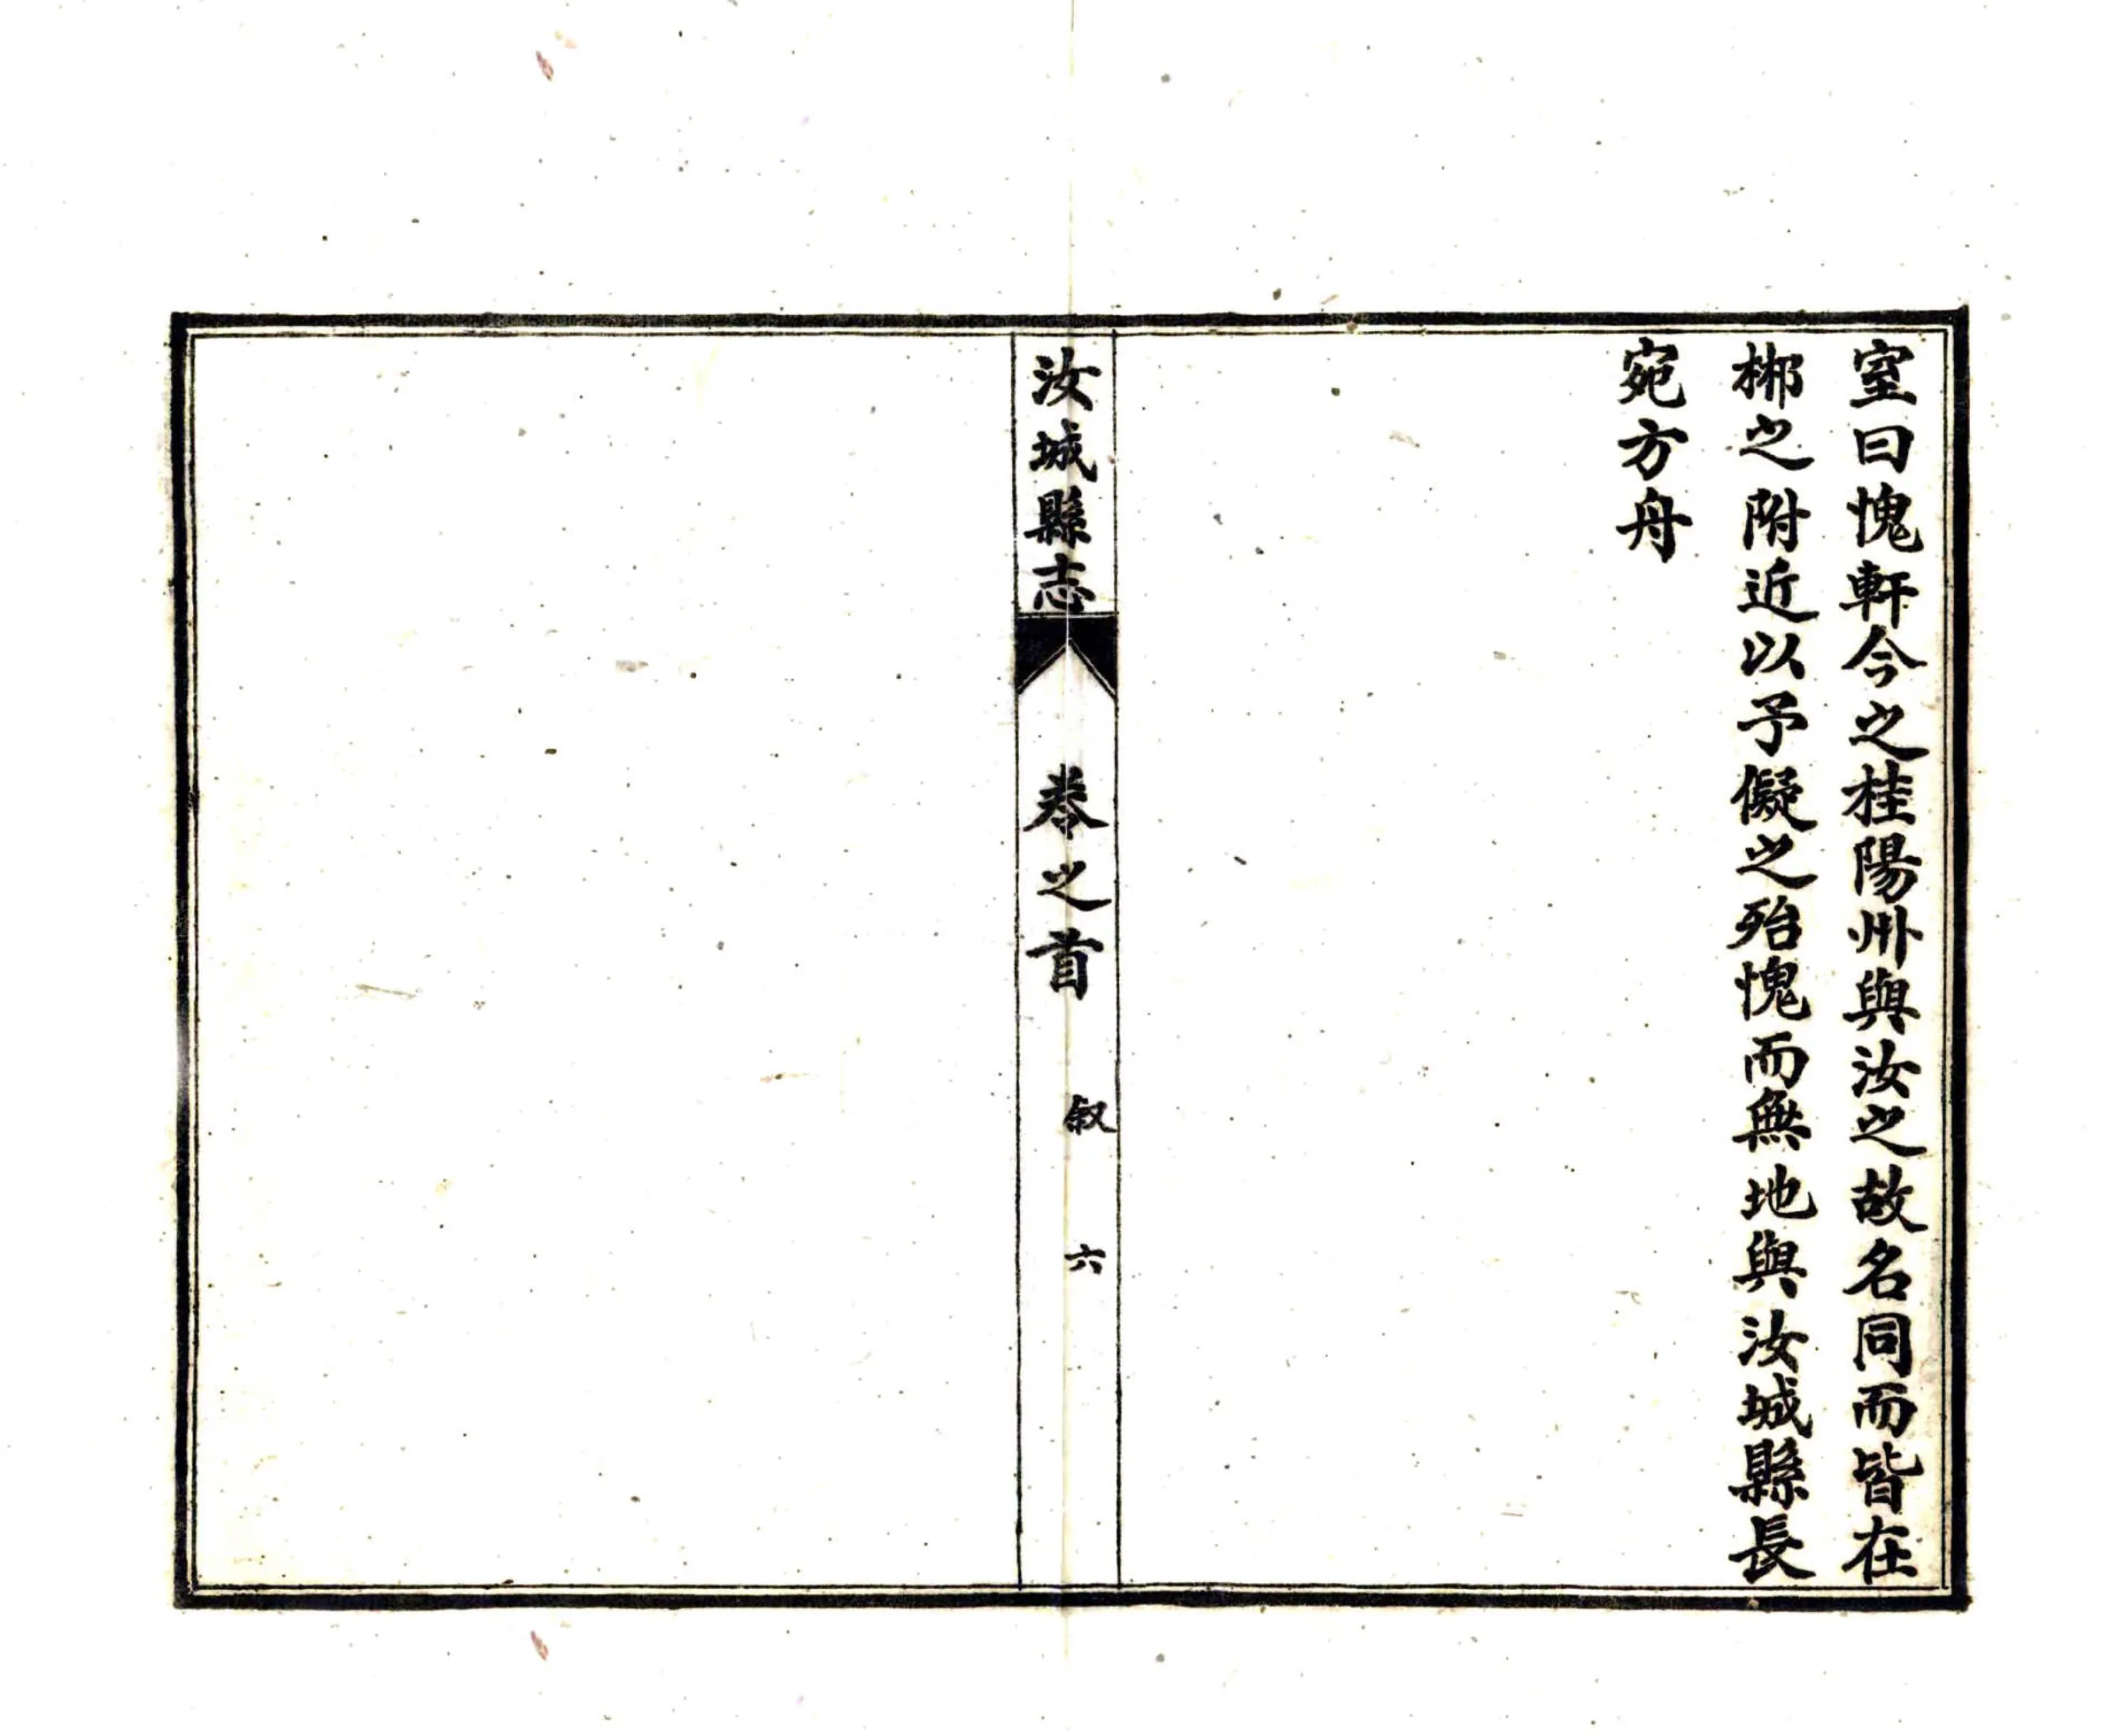 室曰愧軒今之桂陽州與汝之故名同而皆在
郴之附近以予儗之殆愧而無地與汝城縣長
宛方舟
汝城縣志
卷之首
叙
六